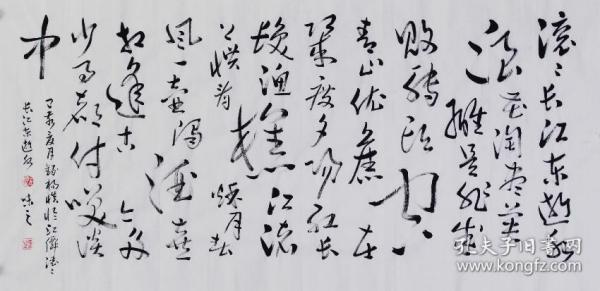 滚々长江东逝水
浪花淘尽英
雄是非成
败转头空
青山依旧在
几度夕阳红
渔樵江渚
上惯看秋月春
风一壶浊酒喜
相逢古今多
少事都付笑谈
中
丁亥夏月录杨慎临江仙滚々
长江东逝水
孔夫子旧书网
www.kongfz.com